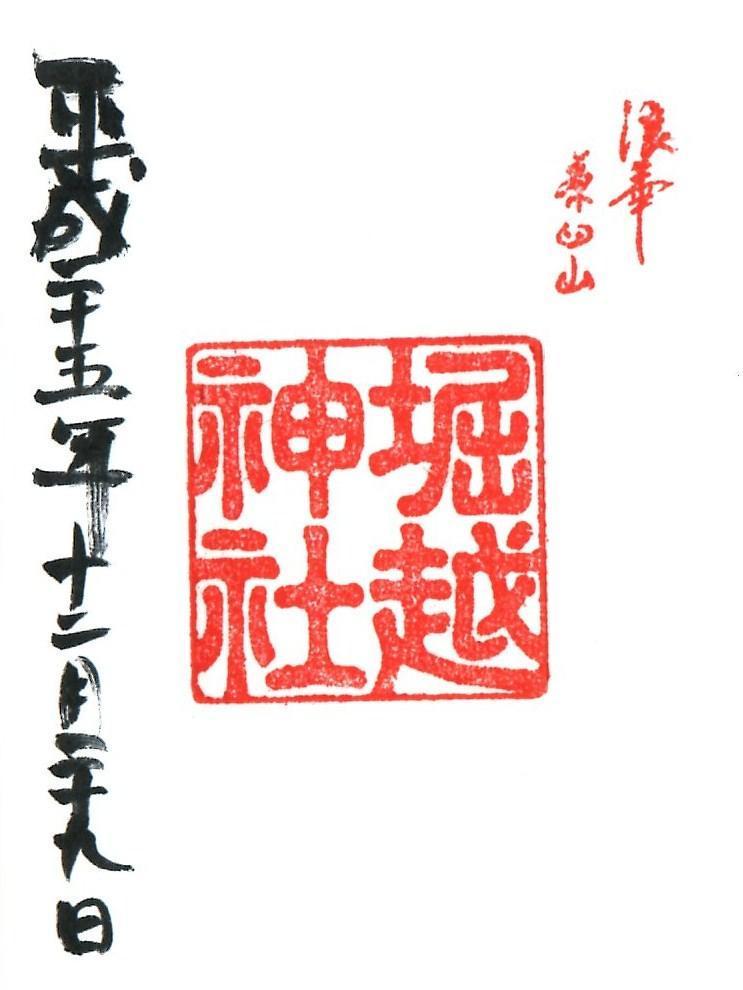 浪華
茶臼山
堀越
神社
平成二十五年十二月二十九日